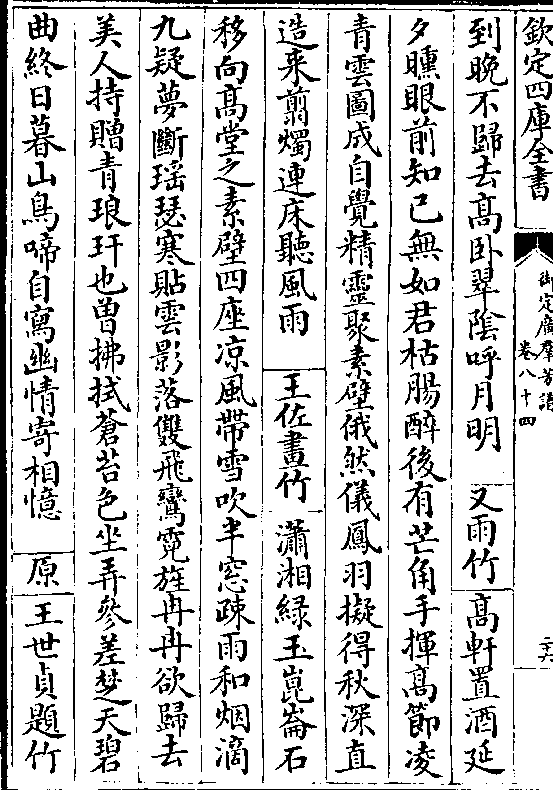 欽定四庫全書
御定廣羣芳譜
卷八十四
二六
到晚不歸去髙卧翠陰呼月明 又雨竹 髙軒置酒延
夕曛眼前知已無如君枯腸醉後有芒角手揮髙節凌
青雲圖成自覺精靈聚素壁俄然儀鳳羽擬得秋深直
造来翦燭連床聽風雨 王佐畫竹 瀟湘緑玉崑崙石
移向髙堂之素壁四座凉風帶雪吹半窓疎雨和烟滴
九疑夢斷瑶瑟寒貼雲影落雙飛鸞霓旌冉冉欲歸去
美人持贈青琅玕也曽拂拭蒼苔色坐弄參差楚天碧
曲終日暮山鳥啼自寫幽情寄相憶 原 王世貞題竹